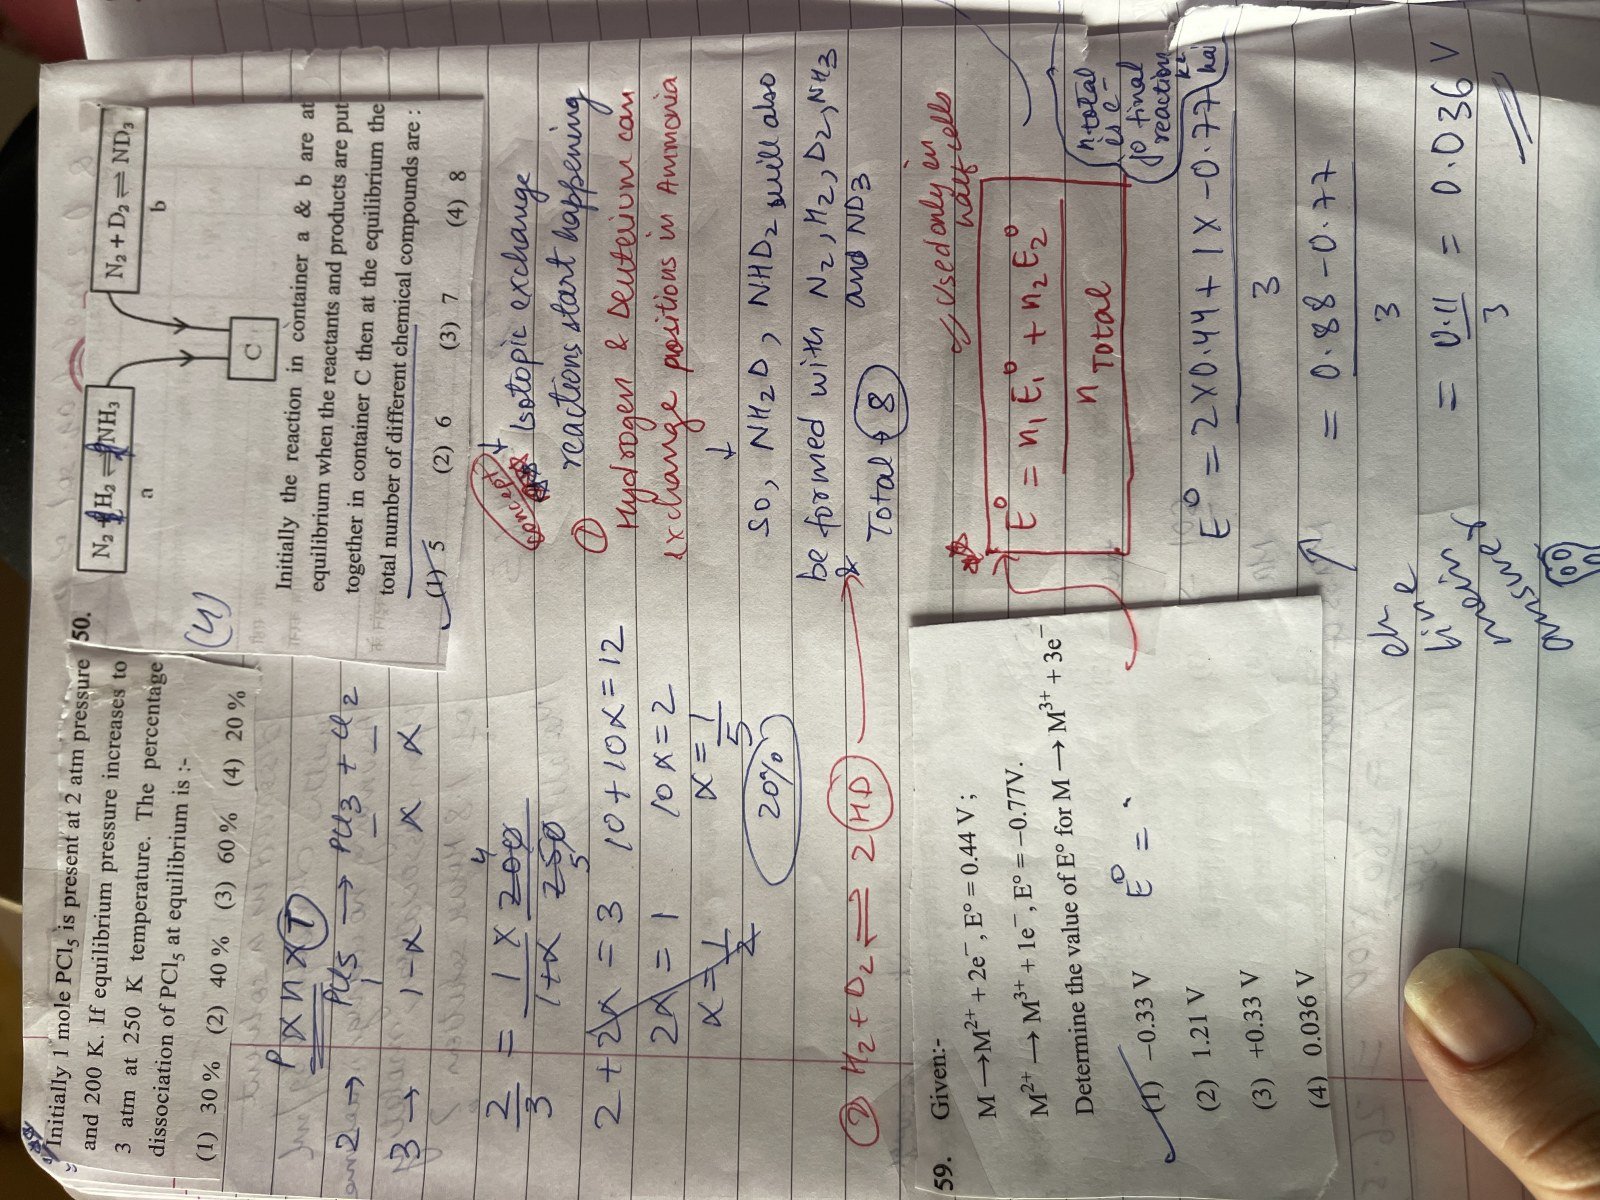 Initially 1 mole PCl5 is present at 2 atm pressure
and 200 K. If equilibrium pressure increases to
3 atm at 250 K temperature. The percentage
dissociation of PCl5 at equilibrium is :-
(1) 30% (2) 40% (3) 60% (4) 20%
P ∝ n × T
2 → PCl5 → PCl3 + Cl2
1 – –
3 → 1-α α α
2/3 = 1/1+α × 200/250 4 5
2 + 2α = 3 10+10α=12
2α = 1 10α=2
α = 1/2 α = 1/5
20%
50.
N2 + H2 ⇌ NH3
N2 + D2 ⇌ ND3
a
b
C
(4)
Initially the reaction in container a & b are at
equilibrium when the reactants and products are put
together in container C then at the equilibrium the
total number of different chemical compounds are :
(1) 5 (2) 6 (3) 7 (4) 8
concept
Isotopic exchange
reactions start happening
① Hydrogen & Deuterium can
exchange positions in Ammonia
↓
So, NH2D, NHD2 will also
be formed with N2, H2, D2, NH3
& and ND3
Total → 8
② H2 + D2 ⇌ 2HD
59. Given:-
M → M2+ + 2e−, E° = 0.44 V ;
M2+ → M3+ + 1e−, E° = −0.77V.
Determine the value of E° for M → M3+ + 3e−
(1) −0.33 V
(2) 1.21 V
(3) +0.33 V
(4) 0.036 V
E° = ?
Used only in
half cells
E° = n1E1° + n2E2°
n Total
n total
is e−
jo final
reaction
ki
hai
E° = 2×0.44 + 1×-0.77
3
= 0.88 - 0.77
3
= 0.11 = 0.036 V
3
line
mein
answer